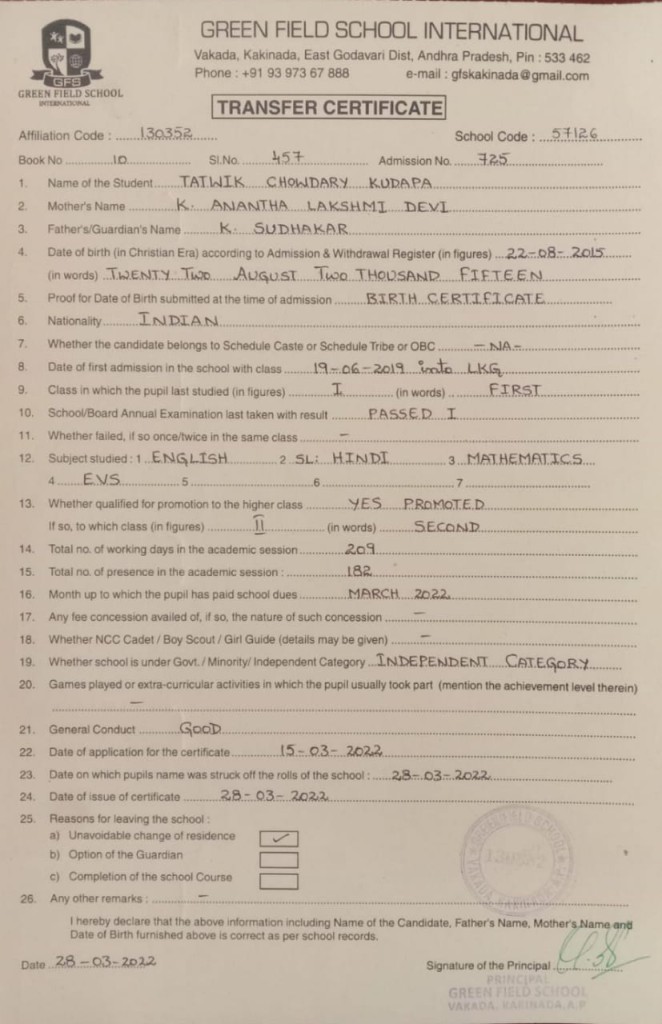 GREEN FIELD SCHOOL INTERNATIONAL
Vakada, Kakinada, East Godavari Dist, Andhra Pradesh, Pin : 533 462
Phone : +91 93 973 67 888 e-mail : gfskakinada@gmail.com
GFS
GREEN FIELD SCHOOL
INTERNATIONAL
TRANSFER CERTIFICATE
Affiliation Code : 130352 School Code : 57126
Book No 10 Sl.No. 457 Admission No. 725
1. Name of the Student TATWIK CHOWDARY KUDAPA
2. Mother's Name K. ANANTHA LAKSHMI DEVI
3. Father's/Guardian's Name K. SUDHAKAR
4. Date of birth (in Christian Era) according to Admission & Withdrawal Register (in figures) 22-08-2015
(in words) TWENTY TWO AUGUST TWO THOUSAND FIFTEEN
5. Proof for Date of Birth submitted at the time of admission BIRTH CERTIFICATE
6. Nationality INDIAN
7. Whether the candidate belongs to Schedule Caste or Schedule Tribe or OBC -NA-
8. Date of first admission in the school with class 19-06-2019 into LKG
9. Class in which the pupil last studied (in figures) I (in words) FIRST
10. School/Board Annual Examination last taken with result PASSED I
11. Whether failed, if so once/twice in the same class -
12. Subject studied : 1 ENGLISH 2 SL: HINDI 3 MATHEMATICS
4 EVS 5 6 7
13. Whether qualified for promotion to the higher class YES PROMOTED
If so, to which class (in figures) II (in words) SECOND
14. Total no. of working days in the academic session 209
15. Total no. of presence in the academic session : 182
16. Month up to which the pupil has paid school dues MARCH 2022
17. Any fee concession availed of, if so, the nature of such concession -
18. Whether NCC Cadet / Boy Scout / Girl Guide (details may be given) -
19. Whether school is under Govt. / Minority/ Independent Category INDEPENDENT CATEGORY
20. Games played or extra-curricular activities in which the pupil usually took part (mention the achievement level therein)
-
21. General Conduct GOOD
22. Date of application for the certificate 15-03-2022
23. Date on which pupils name was struck off the rolls of the school : 28-03-2022
24. Date of issue of certificate 28-03-2022
25. Reasons for leaving the school :
a) Unavoidable change of residence ✓
b) Option of the Guardian
c) Completion of the school Course
26. Any other remarks : -
I hereby declare that the above information including Name of the Candidate, Father's Name, Mother's Name and
Date of Birth furnished above is correct as per school records.
Date 28-03-2022 Signature of the Principal
PRINCIPAL
GREEN FIELD SCHOOL
VAKADA, KAKINADA, A.P